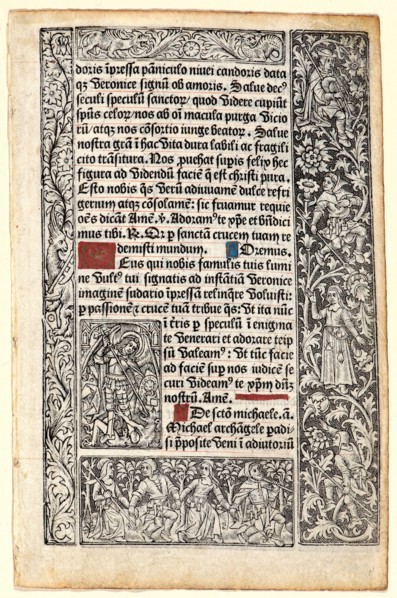 doris īpressa pāniculo niuei candoris data
qȝ Veronice signū ob amoris. Salue dec⁹
seculi speculū sanctoꝝ/quod Videre cupiūt
spūs celoꝝ/nos ab oī macula purga Vicio
rū/atqȝ nos cōsortio iunge beatoꝝ. Salue
nostra grā ī hac Vita dura labili ac fragili
cito trāsitura. Nos ꝓuehat supis felix hec
figura ad Videndū faciē q̄ est christi pura.
Esto nobis qs̄ Verū adiuuamē dulce refri
gerium atqȝ cōsolamē: sic fruamur requie
oēs dicāt Amē. v̄. Adoram⁹te xp̄e et bn̄dici
mus tibi. R̄. Qꝛ ꝑ sanctā crucem tuam re
demisti mundum. Oremus.
Eus qui nobis famulis tuis lumi
ne Vult⁹ tui signatis ad instātiā Veronice
imaginē sudario īpressā relinq̄re Voluisti:
ꝑ passionē ⁊ crucē tuā tribue qs̄: Vt ita nūc
ī tr̄is ꝑ speculū ī enigma
te Venerari et adorare teip
sū Valeam⁹: Vt tūc facie
ad faciē sup nos iudicē se
curi Videam⁹ te xp̄m dn̄ȝ
nostrū. Amē.
De scto michaele. a.
Michael archāgele padi
si p̄posite veni ī adiutoriū